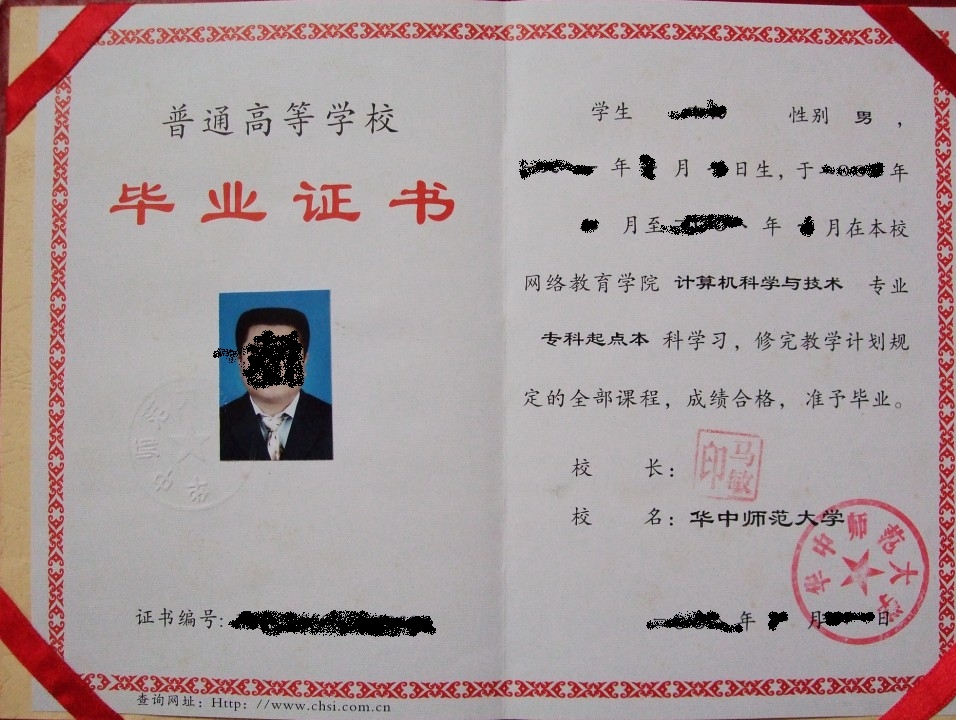 普通高等学校
毕业证书
证书编号:
查询网址: Http: //www.chsi.com.cn
学生 性别 男 ,
年 月 日生, 于 年
月至 年 月在本校
网络教育学院 计算机科学与技术 专业
专科起点本 科学习, 修完教学计划规
定的全部课程, 成绩合格, 准予毕业。
校 长:
马敏印
校 名: 华中师范大学
华中师范大学
年 月 日